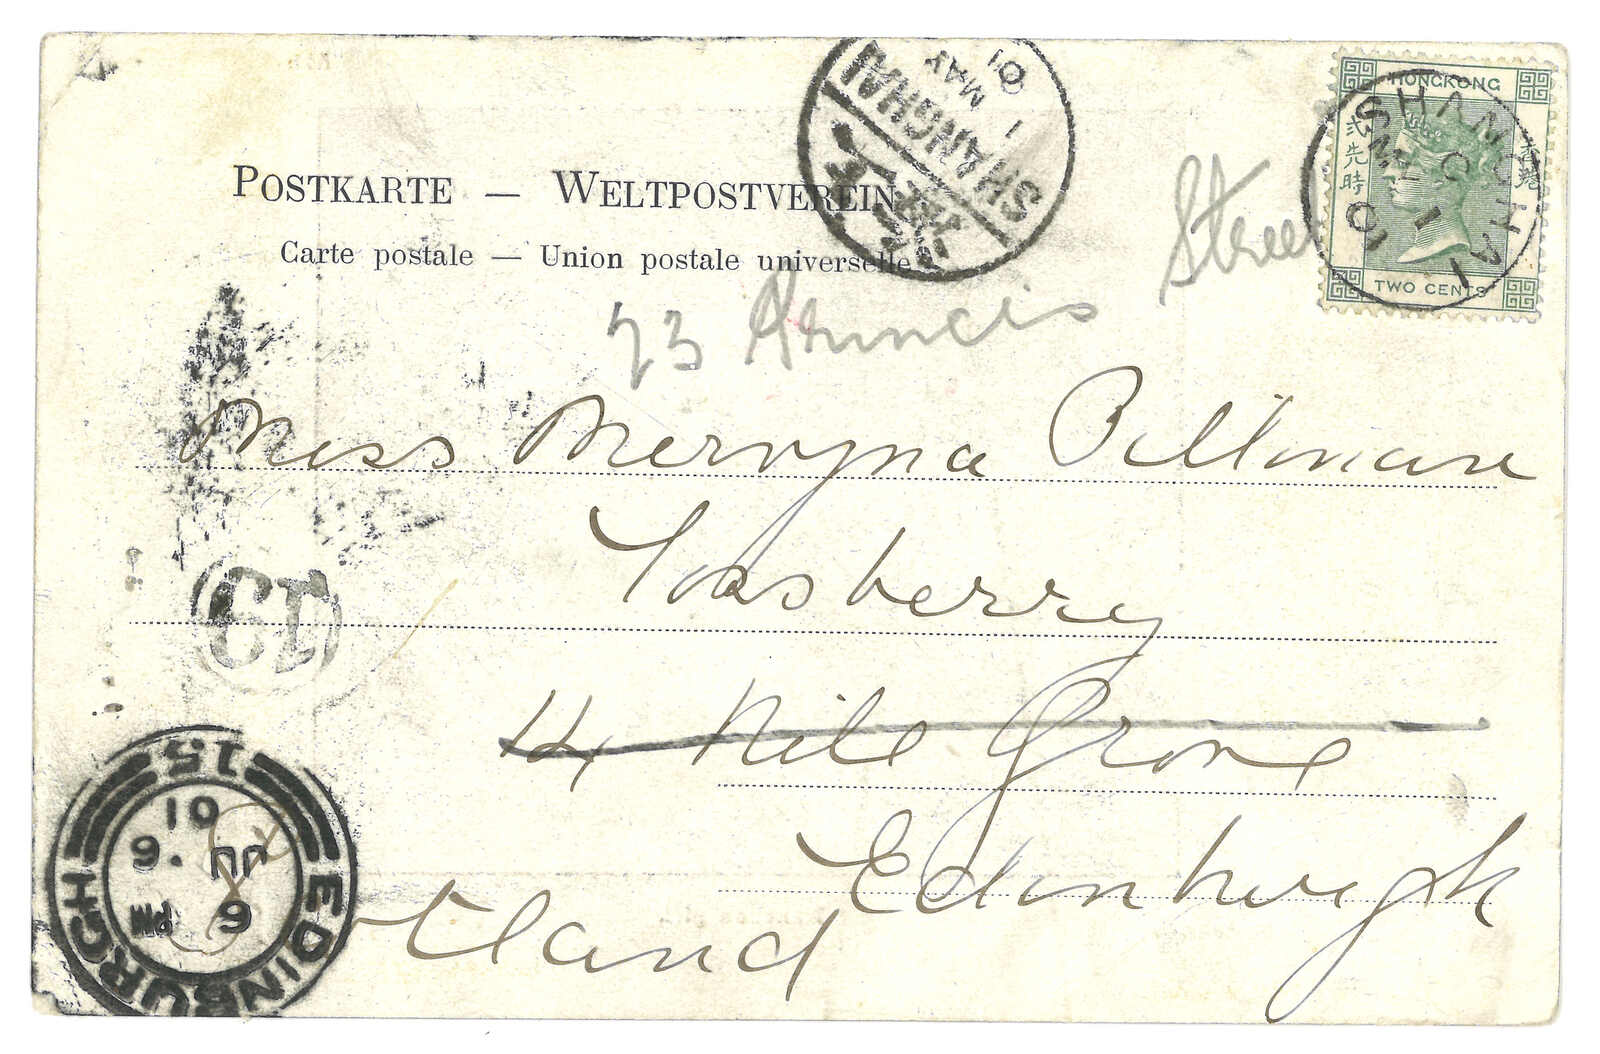 POSTKARTE — WELTPOSTVEREIN
Carte postale — Union postale universelle
SHANGHAI
1 MAY 01
HONGKONG
TWO CENTS
SHANGHAI
MY 1 01
23 Street
Miss Mervyna
14 Nile Grove
Edinburgh
tland
13
EDINBURGH
15
6 PM
JU 6
01